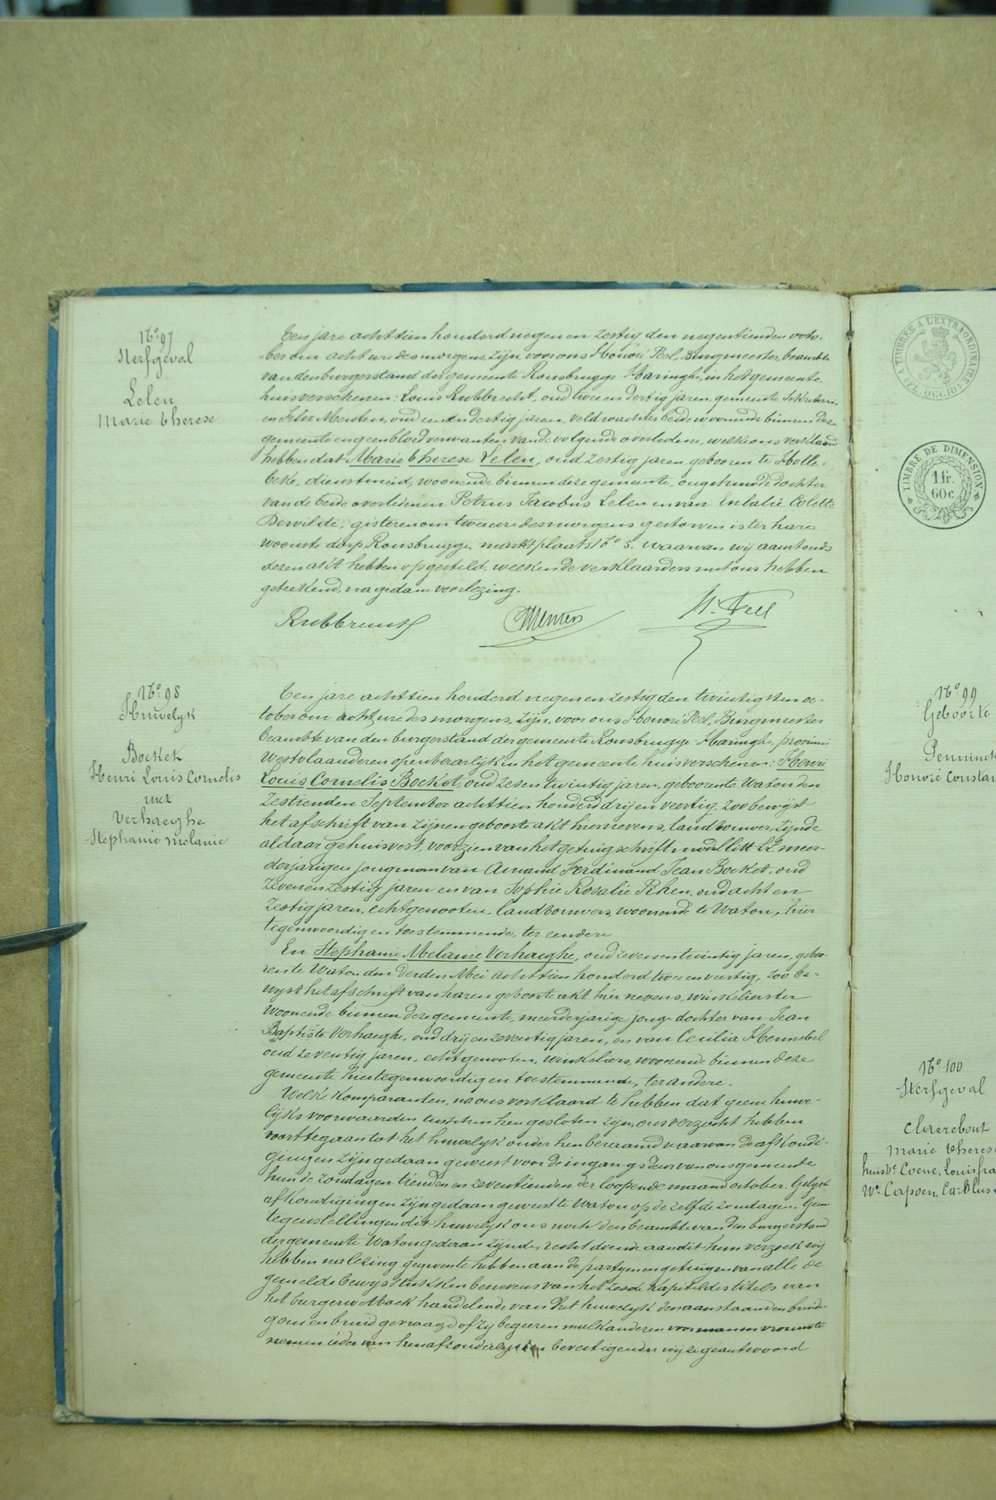 No 97
Sterfgeval
Lelen
Marie Therese
Ten jare achttien honderd negen en zestig den negentienden octo-
ber om acht ure des morgens, zijn voor ons Honoré Pel, Burgmeester, beambte
van den burgerstand der gemeente Rousbrugge Haringhe, in het gemeente
huis verschenen: Louis Rubbrecht, oud twee en dertig jaren, gemeente Sekretaris
en Peter Menten, oud een en dertig jaren, veldwachter beide woonende binnen deze
gemeente en geen bloedverwanten van de volgende overledene, welke ons verklaard
hebben dat Marie Therese Lelen, oud zestig jaren, geboren te Holle-
beke, dienstmeid, woonende binnen deze gemeente, ongehuwde dochter
van de beide overledenen Petrus Jacobus Lelen en van Eulalie Colette
Dewilde, gisteren om twee ure des morgens gestorven is ter hare
wooning dorp Rousbrugge marktplaats No 8. waarvan wij aanstonds
dezen akt hebben opgesteld, welken de verklaarders met ons hebben
geteekend, na gedane voorlezing.
Rubbrecht Menten H. Pell
No 98
Huwelyk
Bocket
Henri Louis Cornelis
met
Verhaeghe
Stephanie Melanie
Ten jare achttien honderd negen en zestig den twintigsten oc-
tober om acht ure des morgens, zijn, voor ons Honoré Pel, Burgmeester
beambte van den burgerstand der gemeente Rousbrugge-Haringhe, provincie
Westvlaanderen openbaarlijk in het gemeente huis verschenen: Henri
Louis Cornelis Bocket, oud zes en twintig jaren, geboren te Watou den
zestienden September achttien honderd drij en veertig, zoo bewijst
het afschrift van zijnen geboorte akt hiernevens, landbouwer, zijnde
aldaar gehuisvest, voorzien van het getuigschrift modell Litt. meer-
derjarigen jongman van Amand Ferdinand Jean Bocket, oud
zeven en zestig jaren en van Sophie Rosalie Peken, oud acht en
zestig jaren, echtgenooten, landbouwers, woonende te Watou, hier
tegenwoordig en toestemmende, ter eendere
En Stephanie Melanie Verhaeghe, oud zeven en twintig jaren, gebo-
ren te Watou den derden Mei achttien honderd twee en veertig, zoo be-
wijst het afschrift van haren geboorte akt hier nevens, winkelierster
woonende binnen deze gemeente, meerderjarige jonge dochter van Jean
Baptiste Verhaeghe, oud drij en zeventig jaren, en van Cecilia Hennebel
oud zeventig jaren, echtgenooten, winkeliers, woonende binnen deze
gemeente hier tegenwoordig en toestemmende, ter andere.
Welke komparanten, na ons verklaard te hebben dat geene huwe-
lijks voorwaarden tusschen hen gesloten zijn, ons verzocht hebben
voorttegaan tot het huwelijk onder hen beraamd waarvan de afkondi-
gingen zijn gedaan geweest voor de ingangsdeur van ons gemeente
huis de zondagen tienden en zeventienden der loopende maand october. Gelijke
afkondigingen zijn gedaan geweest te Watou op de zelfde zondagen. Geen
tegenstelling en dit huwelijk ons noch den beambte van den burgerstand
der gemeente Watou gedaan zijnde, recht doende aan dit hun verzoek wij
hebben na lezing gegeven te hebben aan de partijen en getuigen van alle de
gemelde bewijsstukken benevens van het zesde kapittel des titels van
het burgerwetboek handelende van het huwelijk den aanstaanden bruide-
gom en bruid gevraagd of zij begeeren malkanderen voor man en vrouw te
nemen ieder van hen afzonderlijk en bevestigender wijze geantwoord
TIMBRE A L'EXTRAORDINAIRE
TIMBRE DE DIMENSION
1 fr.
60 c.
No 99
Geboorte
Penninck
Honoré Constan
No 100
Sterfgeval
Clarebout
Marie Therese
huisv. Coene, Louis fra
We. Capoen, Car. Lus